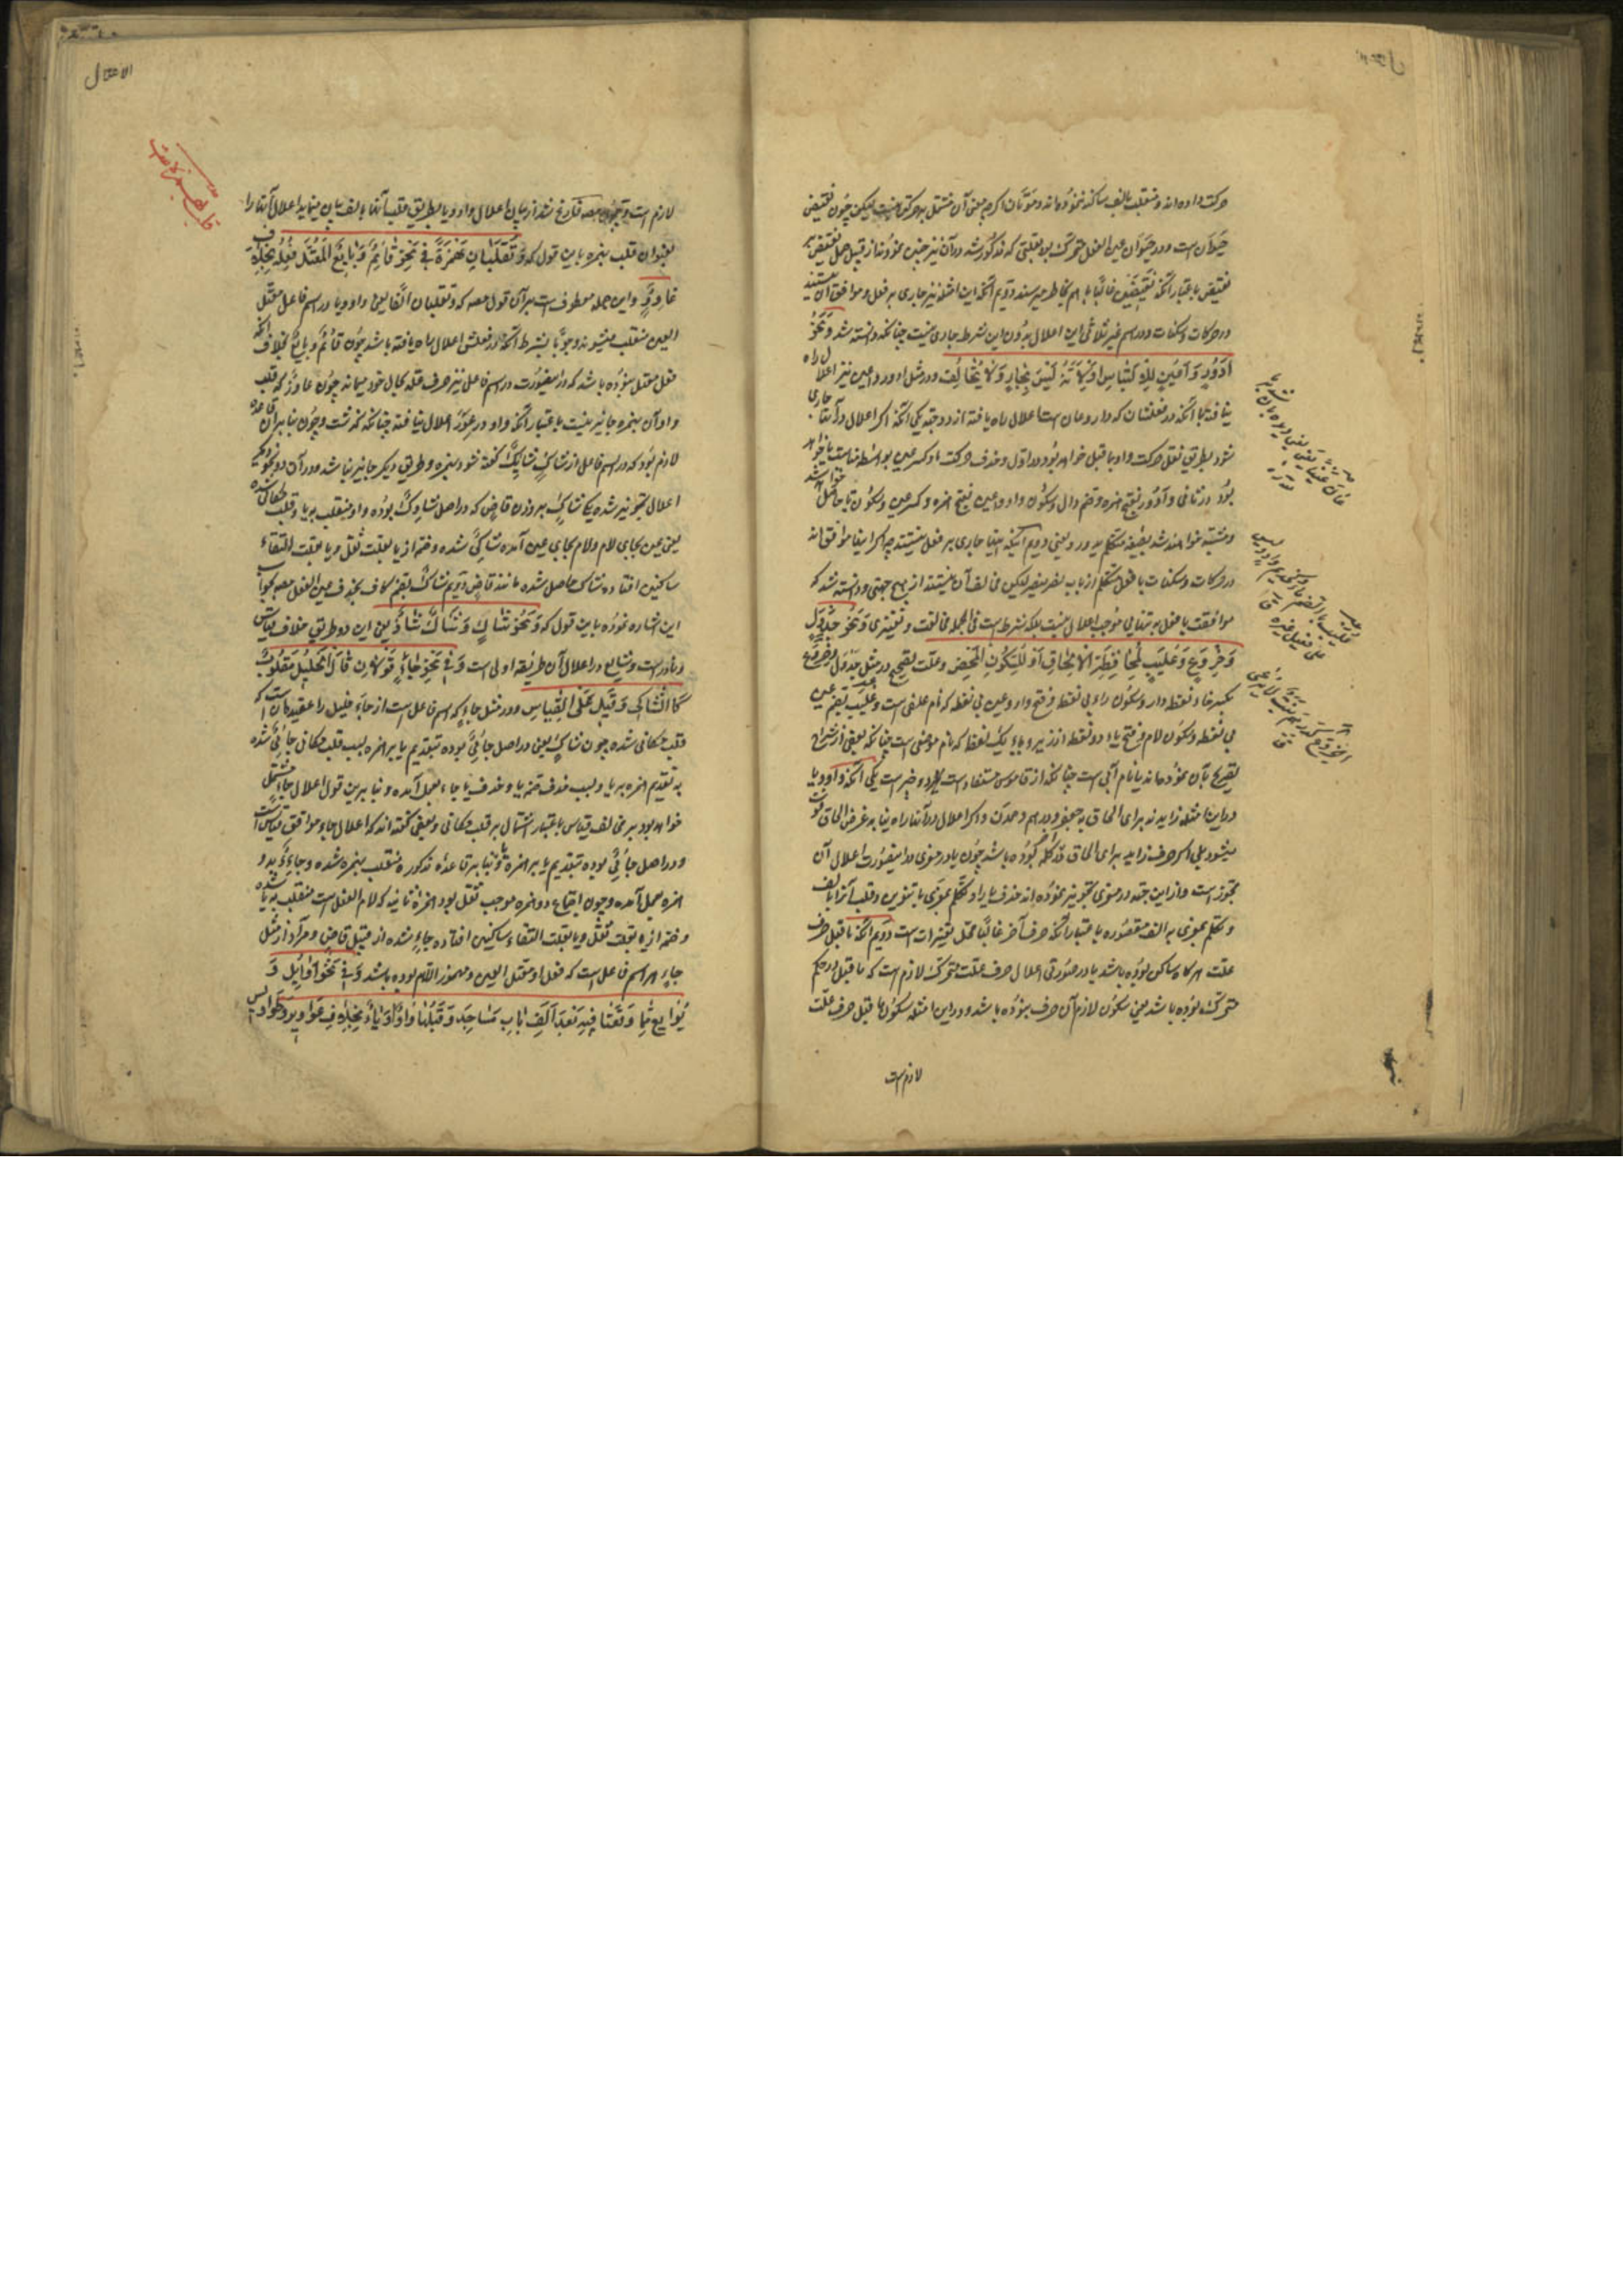 حرکت داده‌اند و منقلب بالف ساکنه ننموده‌اند و موتان اگرچه معنی آن مشتمل بر حرکتی نیست لیکن چون نقیض
حیوان است و در حیوان عین الفعل متحرک بود بعلتی که مذکور شد در آن نیز چنین نمودند از قبیل حمل نقیض بر
نقیض باعتبار آنکه نقیضین غالبا باهم بخاطر میرسند دویم آنکه این امثله نیز جاری بر فعل و موافق آن نیستند
در حرکات و سکنات و در اسم غیر ثلاثی این اعلال بدون این شرط جاری نیست چنانکه دانسته شد و نحو
ادور و اعین للالتباس او لانه لیس بجار و لا مخالف و در مثل ادور و اعین نیز اعلال راه
نیافته با آنکه در فعلشان که دار و عان است اعلال راه یافته از دو جهة یکی آنکه اگر اعلال در آنها جاری
شود بطریق نقل حرکت واو بما قبل خواهد بود در اول و حذف حرکت او کسر عین بواسطه مناسبت یا خواهد
بود در ثانی و ادور بفتح همزه و ضم دال و سکون واو و اعین بفتح همزه و کسر عین و سکون یا حاصل خواهد شد
و مشتبه خواهند شد بصیغه متکلم یدور و یعین دویم آنکه اینها جاری بر فعل نیستند چه اگر اینها موافق‌اند
در حرکات و سکنات با فعل متکلم از باب نصر ینصر لیکن مخالف آن نیستند از هیچ جهتی و دانسته شد که
موافقت با فعل به تنهایی موجب اعلال نیست بلکه شرط است فی الجمله مخالفت و تغییری و نحو جدول
و خروع و علیب لمحافظة الالحاق او للسکون المحض و علت تصحیح در مثل جدول و خروع
بکسر خاء نقطه دار و سکون راء بی نقطه و فتح واو و عین بی نقطه که نام علفی است و علیب بضم عین
بی نقطه و سکون لام و فتح یاء دو نقطه از زیر و باء یک نقطه که نام موضعی است چنانکه بعضی از شراح
تصریح بآن نموده‌اند یا نام آبی است چنانکه از قاموس مستفاد است دو چیز است یکی آنکه واو و یا
در این امثله زایدند برای الحاق به جعفر و درهم و جخدب و اگر اعلال در آنها راه یابد غرض الحاق فوت
میشود بلی اگر حرف زاید برای الحاق در آخر کلمه بوده باشد چون یا در معزی در اینصورت اعلال آن
مجوز است و از این جهة در معزی تجویز نموده‌اند حذف یا را و تکلم بمعزی با تنوین و قلب آنرا بالف
و تکلم بمعزی به الف مقصوره باعتبار آنکه حرف آخر غالبا محل تغییرات است دویم آنکه ما قبل حرف
علت هرگاه ساکن بوده باشد یا در صورتی اعلال حرف علت متحرک لازم است که ما قبل در حکم
متحرک بوده باشد یعنی سکون لازم آن حرف نبوده باشد و در این امثله سکون ما قبل حرف علت
لازم است
الاعتلال
لازم است و چون مصه فارغ شد از بیان اعلال واو و یا بطریق قلب آنها بالف بیان مینماید اعلال آنها را
بعنوان قلب بهمزه باین قول که و تقلبان همزة فی نحو قائم و بایع المعتل فعله بخلاف
عاور و این جمله معطوف است بر آن قول مصه که و تقلبان الفا یعنی واو و یا در اسم فاعل معتل
العین منقلب میشوند وجوبا بشرط آنکه در فعلش اعلال راه یافته باشد چون قائم و بایع بخلاف آنکه
فعل معتل نبوده باشد که در اینصورت در اسم فاعل نیز حرف عله بحال خود میماند چون عاور که قلب
واو آن بهمزه جایز نیست باعتبار آنکه واو در عور اعلال نیافته چنانکه گذشت و چون بنا بر آن قاعده
لازم بود که در اسم فاعل از شاک شائک گفته شود بهمزه و طریق دیگر جایز نباشد و در آن دو نحو دیگر
اعلال تجویز شده یکی شاک بر وزن قاض که در اصل شاوک بوده واو منقلب بیا و قلب مکانی شده
یعنی عین بجای لام و لام بجای عین آمده شاکی شده و ضمه از یا بعلت ثقل و یا بعلت التقاء
ساکنین افتاده شاک حاصل شده مانند قاض دویم شاک بضم کاف بحذف عین الفعل مصه بجواب
این اشاره نموده باین قول که و نحو شاک و شاک شاذ یعنی این دو طریق خلاف قیاس
و نادر است و شایع در اعلال آن طریقه اولی است و فی نحو جاء قولان قال الخلیل مقلوب
کالشاکی و قیل علی القیاس و در مثل جاء که اسم فاعل است از جاء خلیل را عقیده آن است که
قلب مکانی شده چون شاک یعنی در اصل جائئ بوده بتقدیم یا بر همزه بسبب قلب مکانی جائی شده
به تقدیم همزه بر یا و بسبب حذف ضمه یا و حذف یا جاء بعمل آمده و بنا برین قول اعلال جاء مشتمل
خواهد بود بر مخالف قیاس باعتبار اشتمال بر قلب مکانی و بعضی گفته‌اند که اعلال جاء موافق قیاس است
و در اصل جائئ بوده بتقدیم یا بر همزه و بنا بر قاعده مذکوره یا منقلب بهمزه شده و جاءء بدو
همزه بعمل آمده و چون اجتماع دو همزه موجب ثقل بود همزه ثانیه که لام الفعل است منقلب بیا شده
و ضمه از یا بعلت ثقل و یا بعلت التقاء ساکنین افتاده جاء شده از قبیل قاض و مراد از مثل
جاء هر اسم فاعل است که فعل او معتل العین و مهموز اللام بوده باشد و فی نحو اوائل و
بوایع مما وقعتا فیه بعد الف باب مساجد و قبلها واو او یاء بخلاف عواویر و طواویس